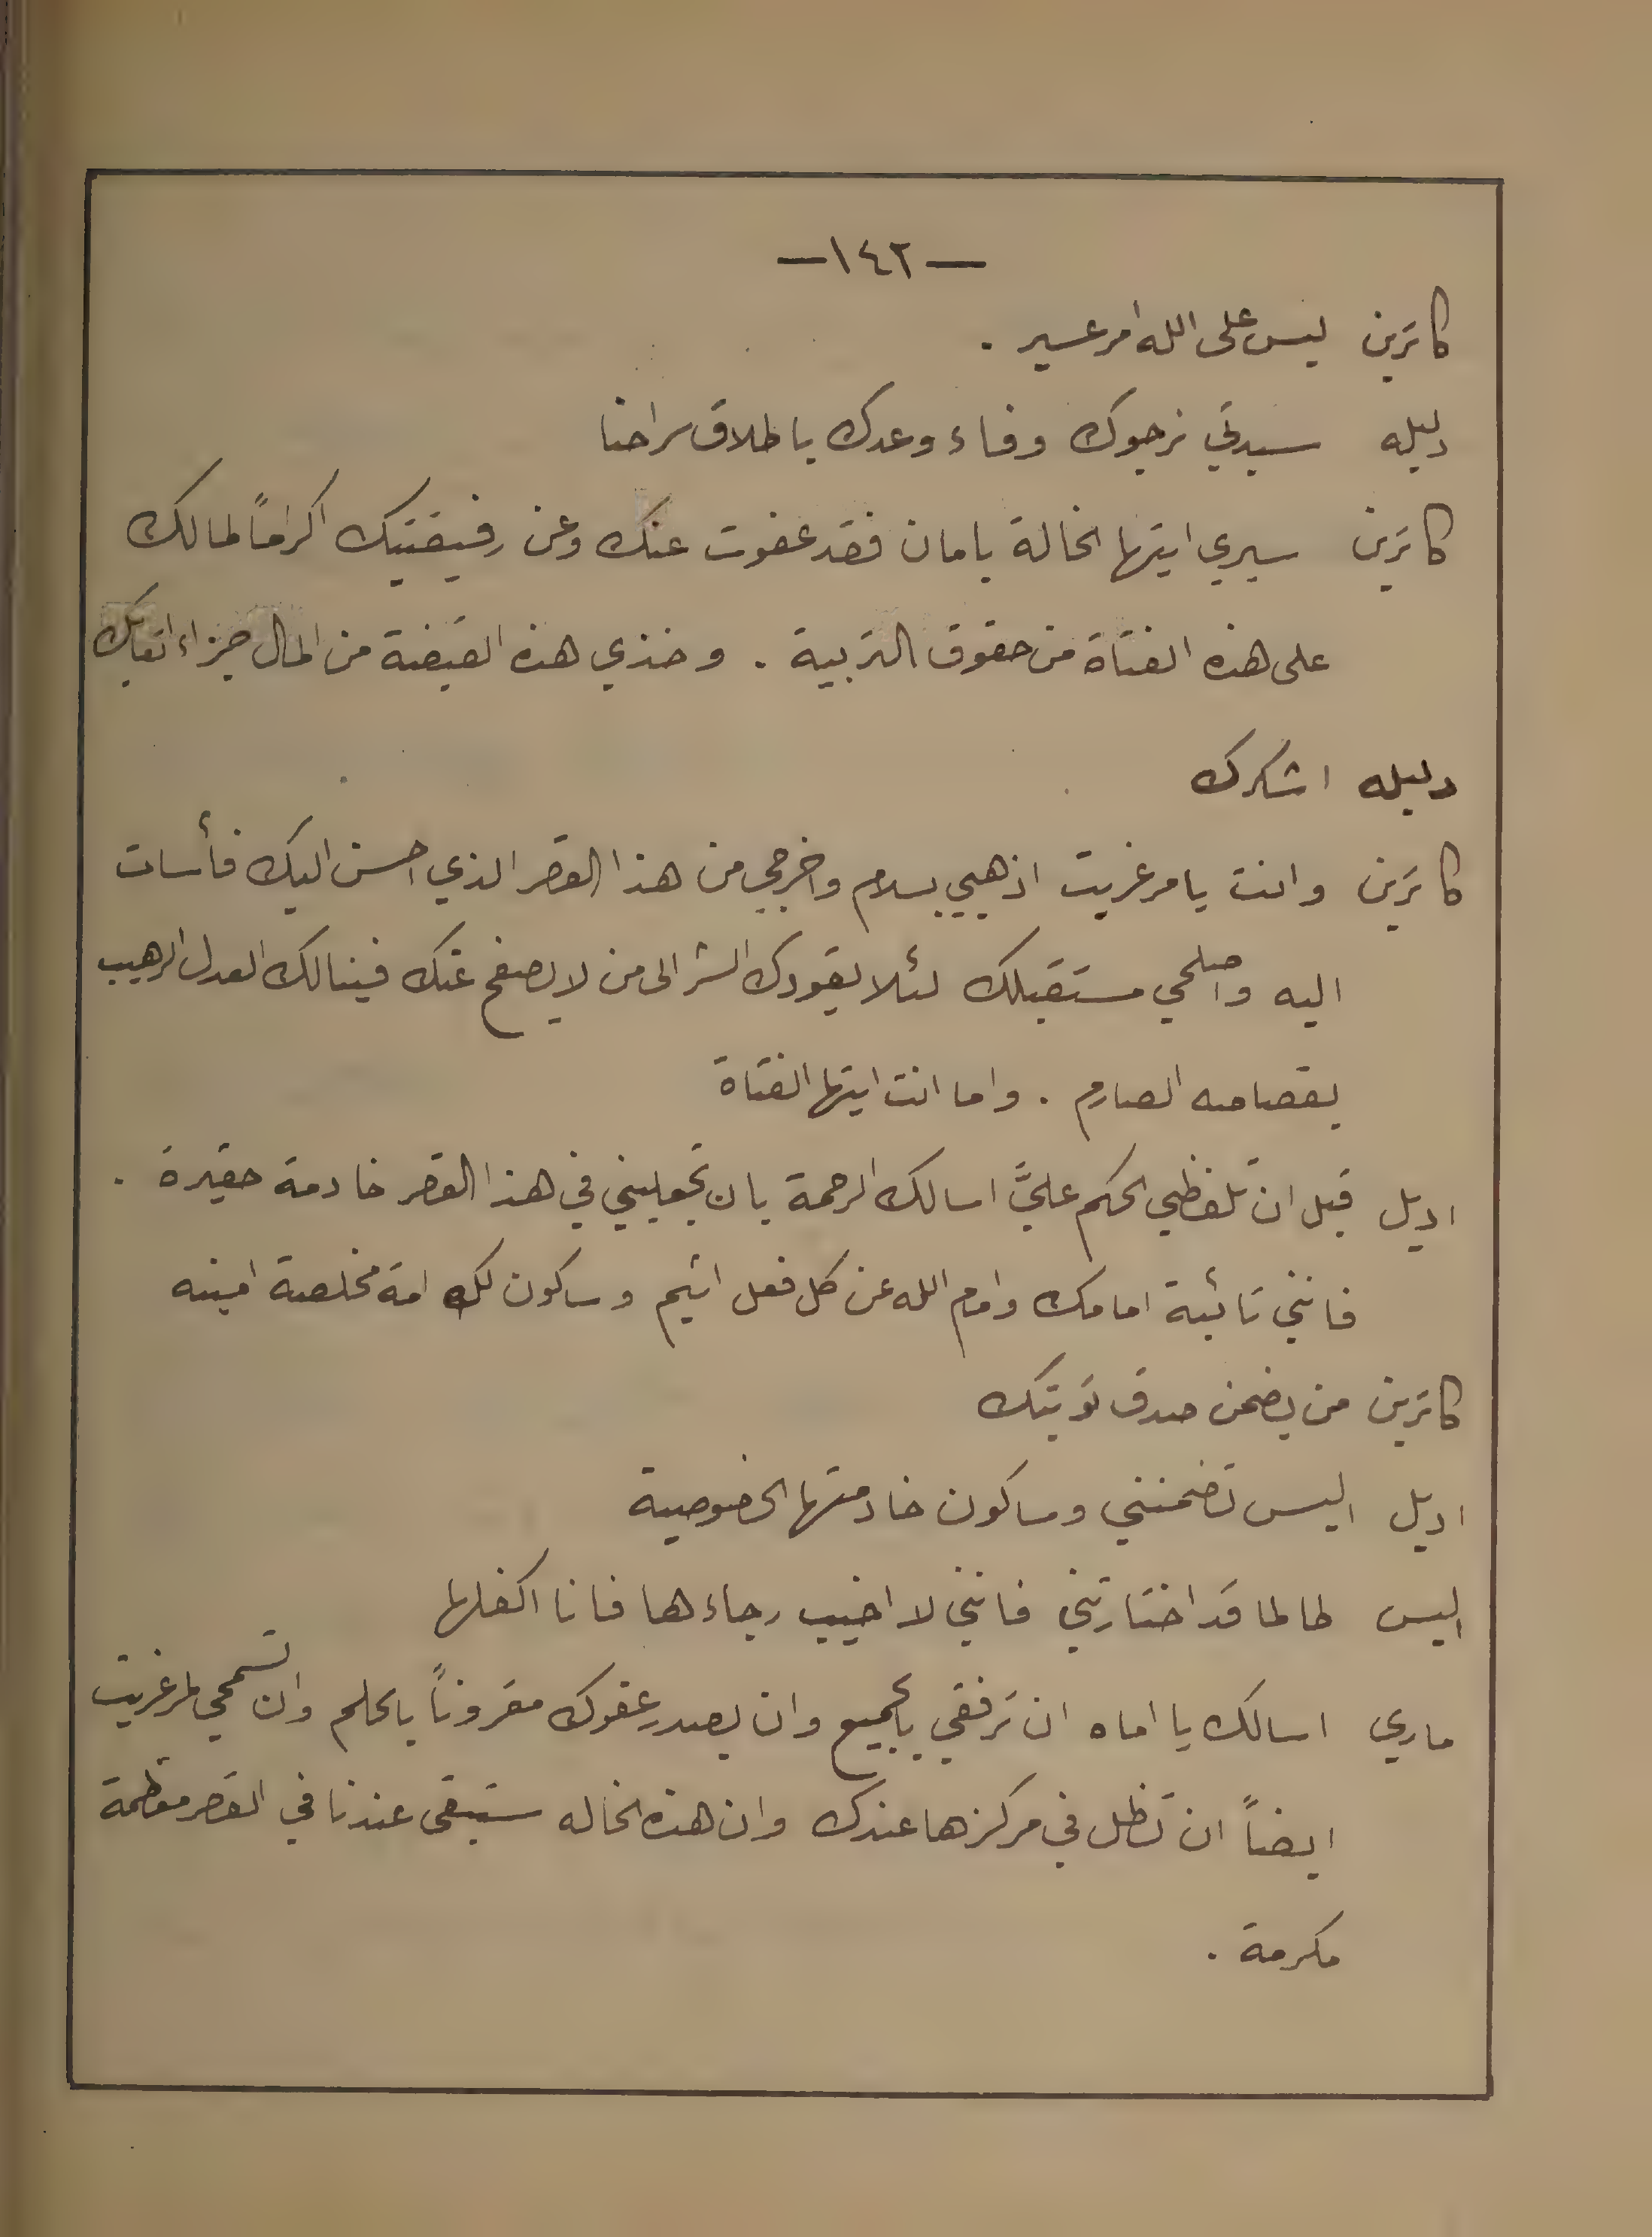 —١٤٢—
كاترين ليس على الله امر عسير .
دليله سيدتي نرجوك وفاء وعدك باطلاق سراحنا
كاترين سيري ايتها الخالة بامان فقد عفوت عنك وعن رفيقتيك اكراماً لمالك
على هذه الفتاة من حقوق التربية . وخذي هذه القبضة من المال جزاء اتعابك
دليله اشكرك
كاترين وانت يا مرغريت اذهبي بسلام واخرجي من هذا القصر الذي احسن اليك فأسات
اليه واصلحي مستقبلك لئلا يقودك الشر الى من لا يصفح عنك فينالك العدل الرهيب
بقصاصه الصارم . واما انت ايتها الفتاة
اديل قبل ان تلفظي الحكم عليَّ اسالك الرحمة بان تجعليني في هذا القصر خادمة حقيرة .
فانني تائبة امامك وامام الله عن كل فعل اثيم وساكون لك امة مخلصة امينه
كاترين من يضمن صدق توبتك
اديل اليس تضمنني وساكون خادمتها الخصوصية
اليس طالما قد اختارتني فانني لا اخيب رجاءها فانا اكفلها
ماري اسالك يا اماه ان ترفقي بالجميع وان يصدر عفوك مقروناً بالحلم وان تسمحي لمرغريت
ايضاً ان تظل في مركزها عندك وان هذه الخاله ستبقى عندنا في القصر معظمة
مكرمة .